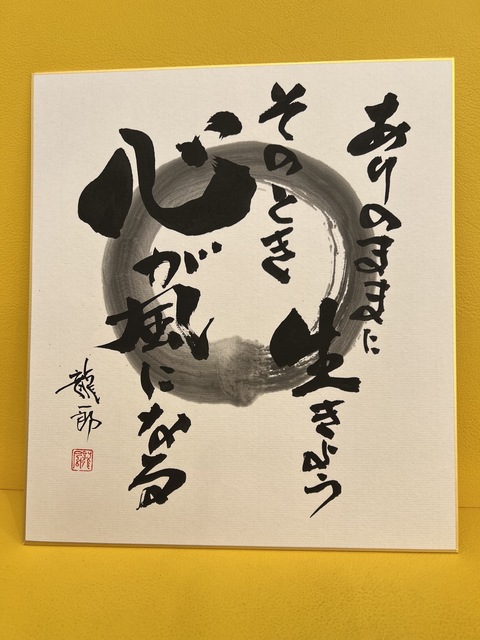 ありのままに
生きよう
そのとき
心が風になる
龍一郎